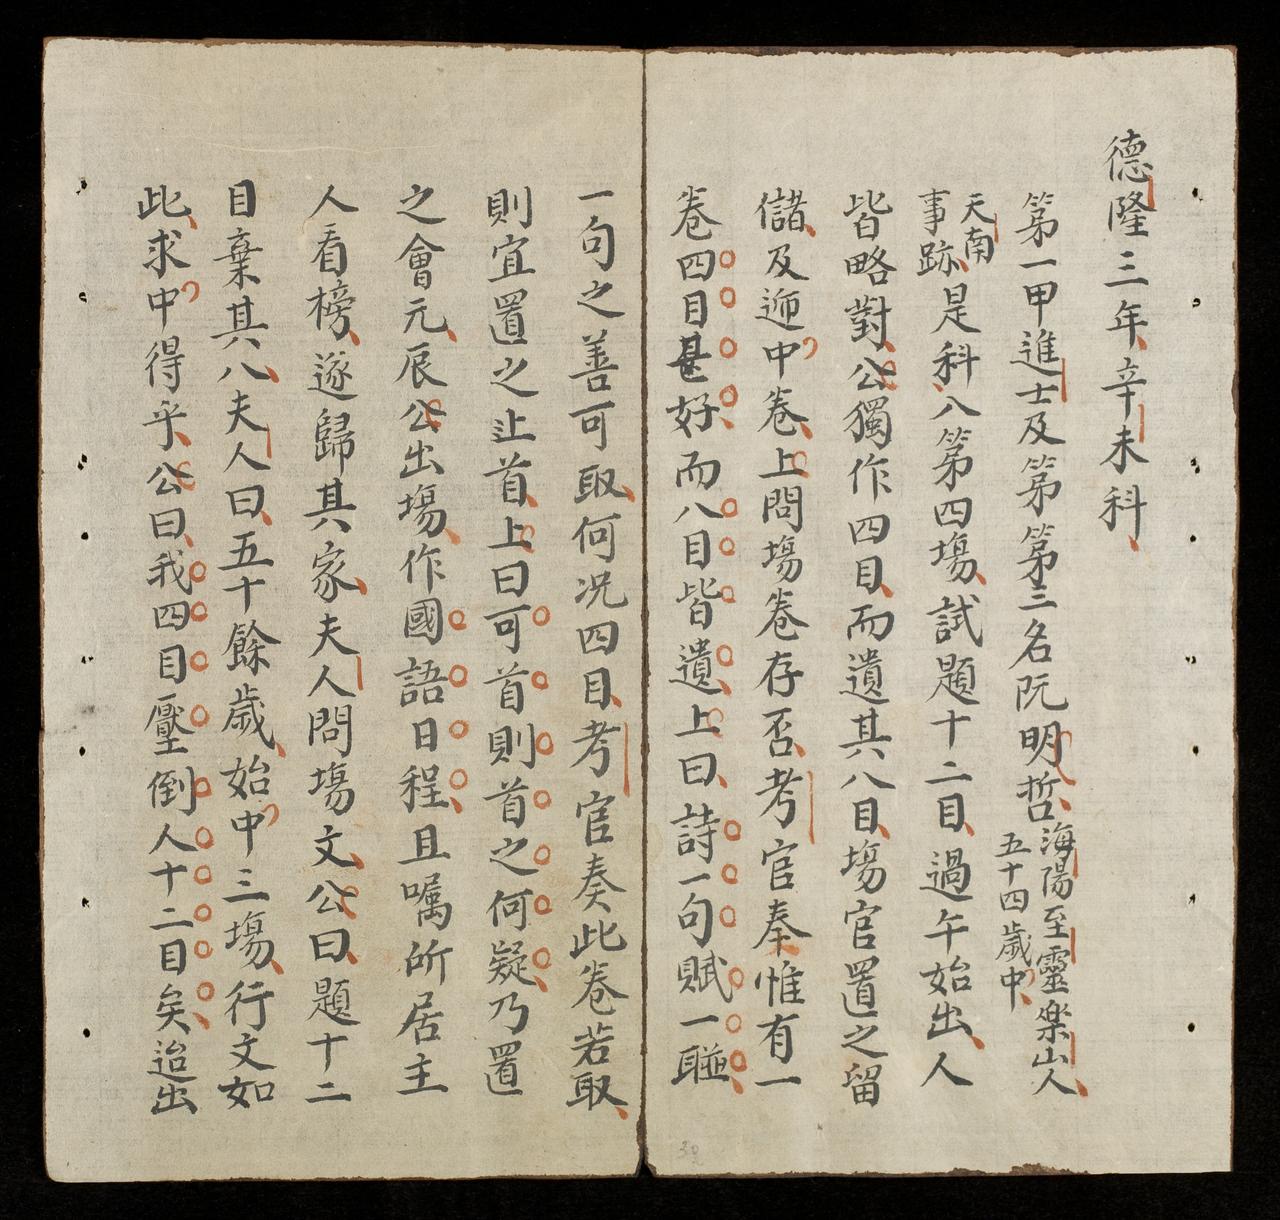 德隆三年辛未科
第一甲進士及第第三名阮明哲海陽至靈樂山人
五十四歲中
天南
事跡是科八第四塲試題十二目過午始出人
皆略對公獨作四目而遺其八目塲官置之留
儲及迊中卷上問塲卷存否考官奉惟有一
卷四目甚好而八目皆遺上曰詩一句賦一聯
一句之善可取何況四目考官奏此卷若取
則宜置之止首上曰可首則首之何疑乃置
之會元辰公出塲作國語日程且囑所居主
人看榜遂歸其家夫人問塲文公曰題十二
目棄其八夫人曰五十餘歲始中三塲行文如
此求中得乎公曰我四目壓倒人十二目矣迨出